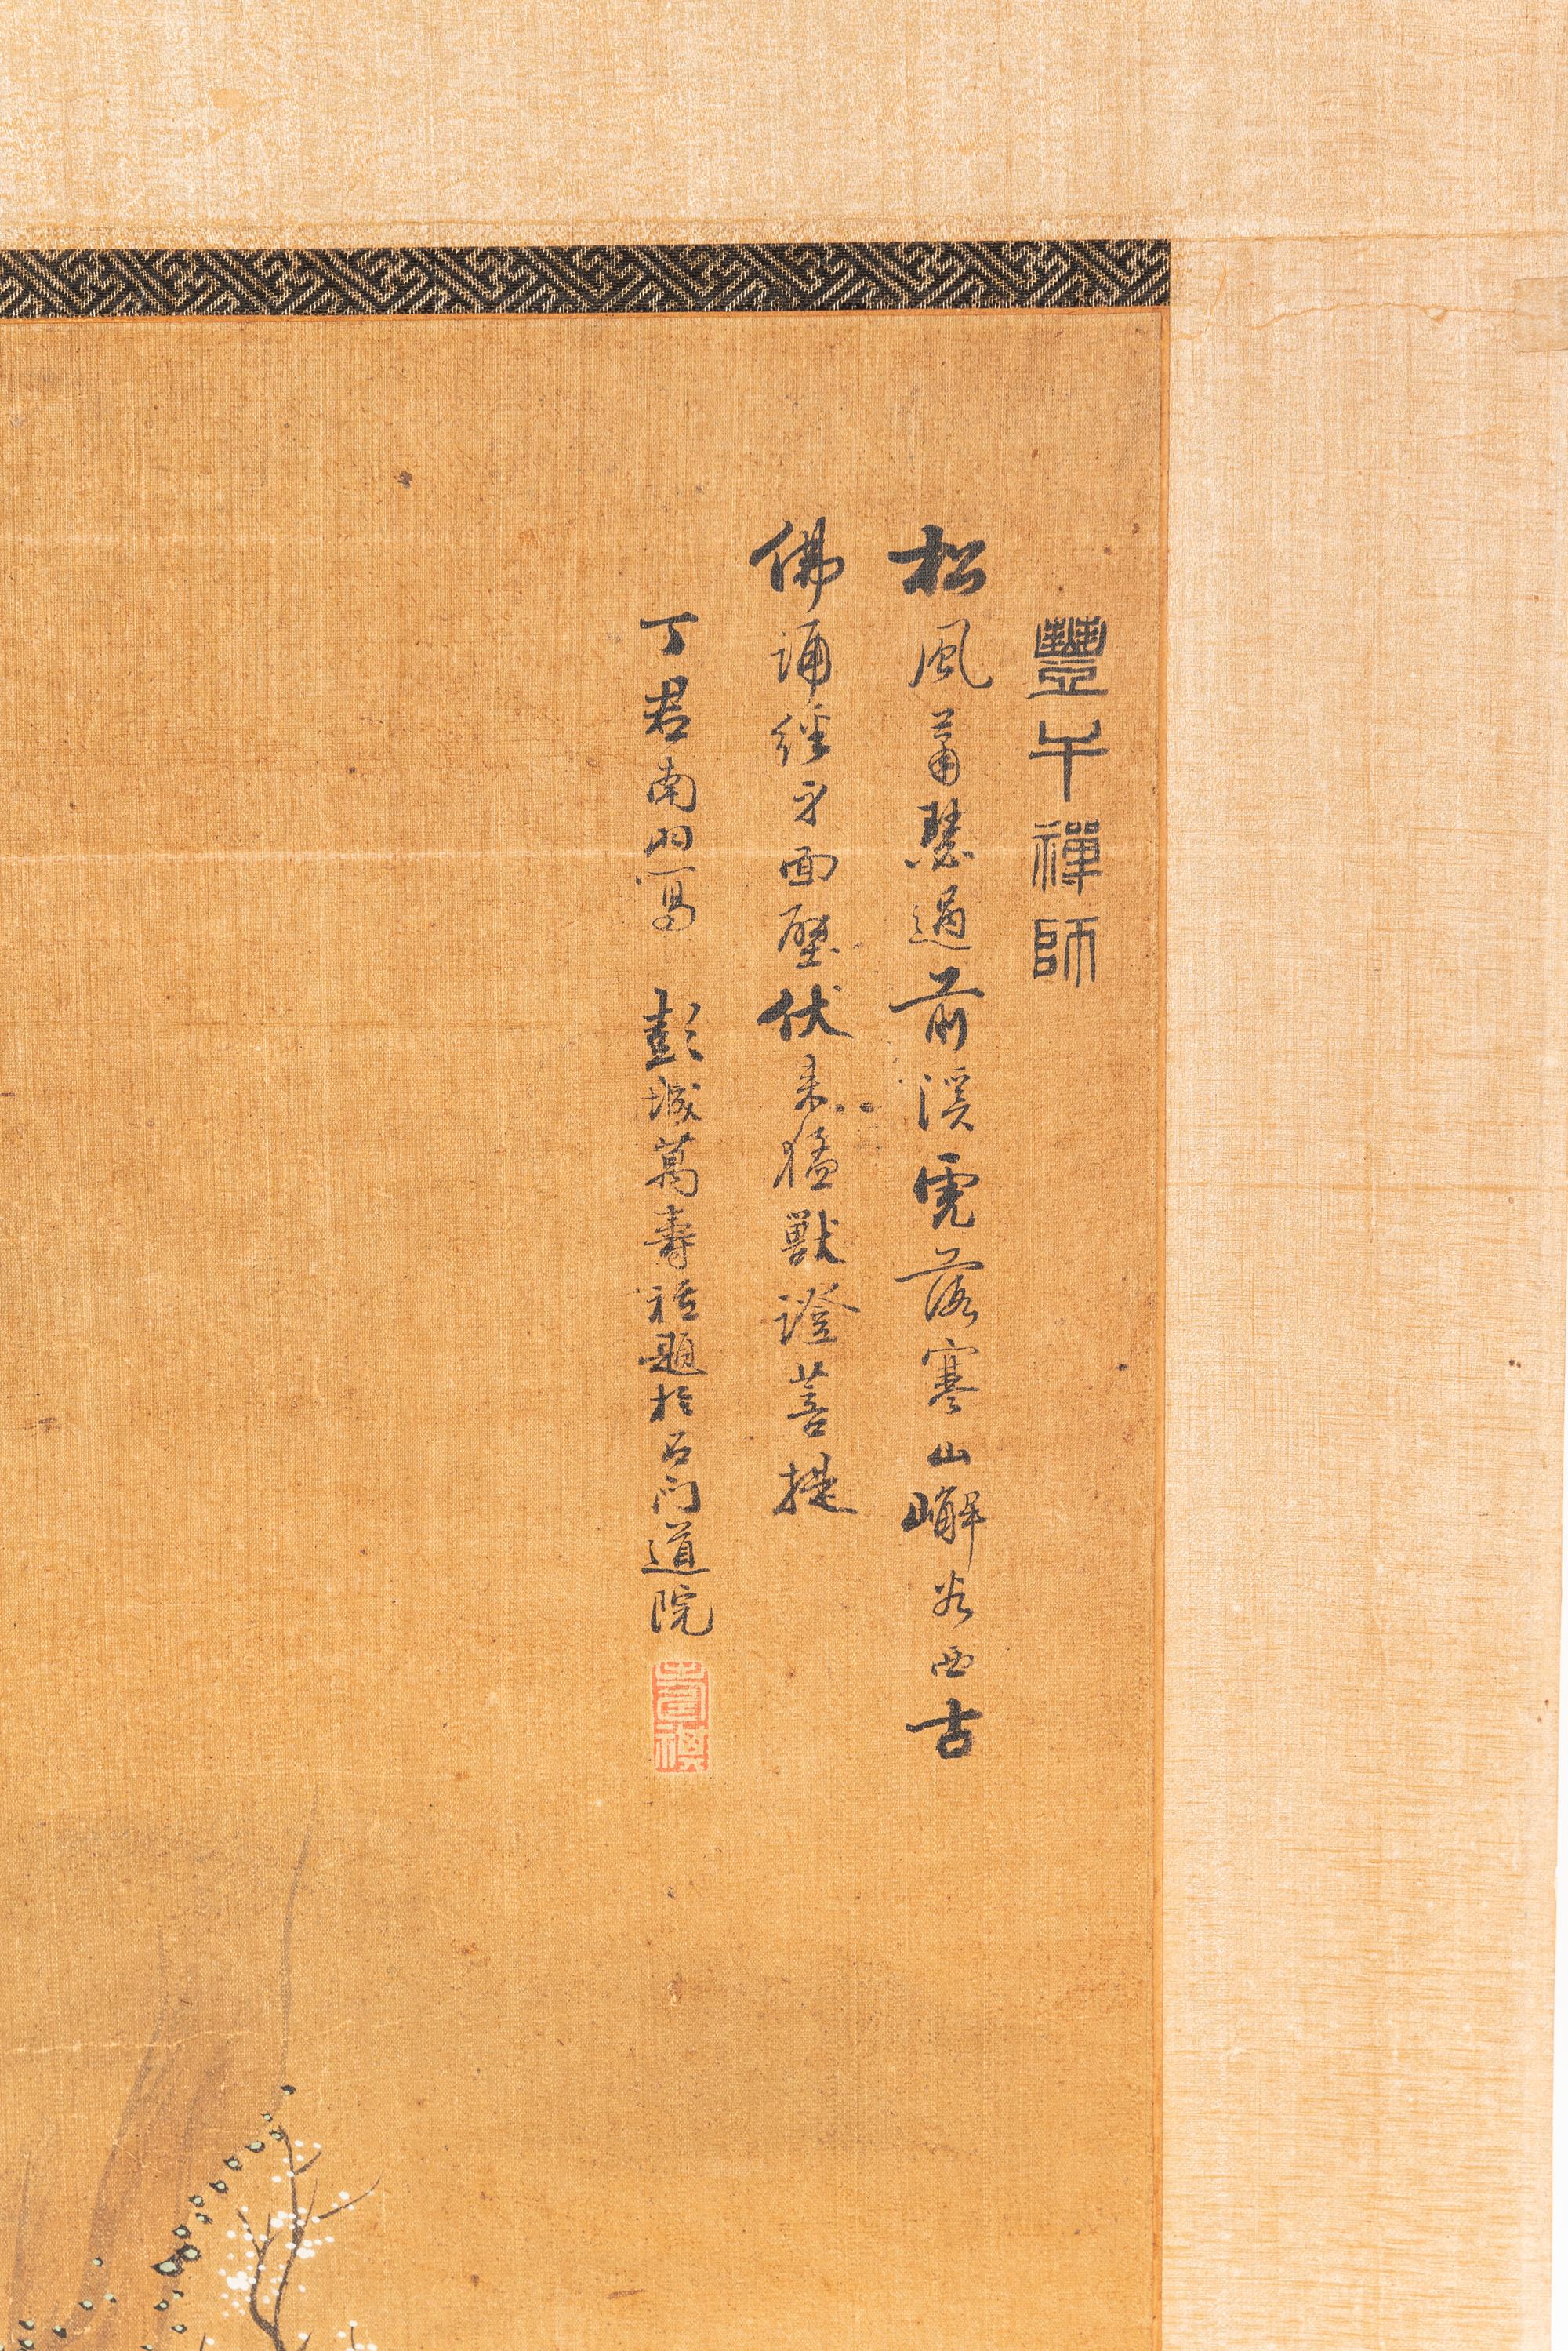 豐干禪師
松風蕭瑟過前溪虎落寒山嶰谷西古
佛誦經面壁伏来猛獸證菩提
丁君南羽寫 彭城萬壽祺題於石門道院
壽祺